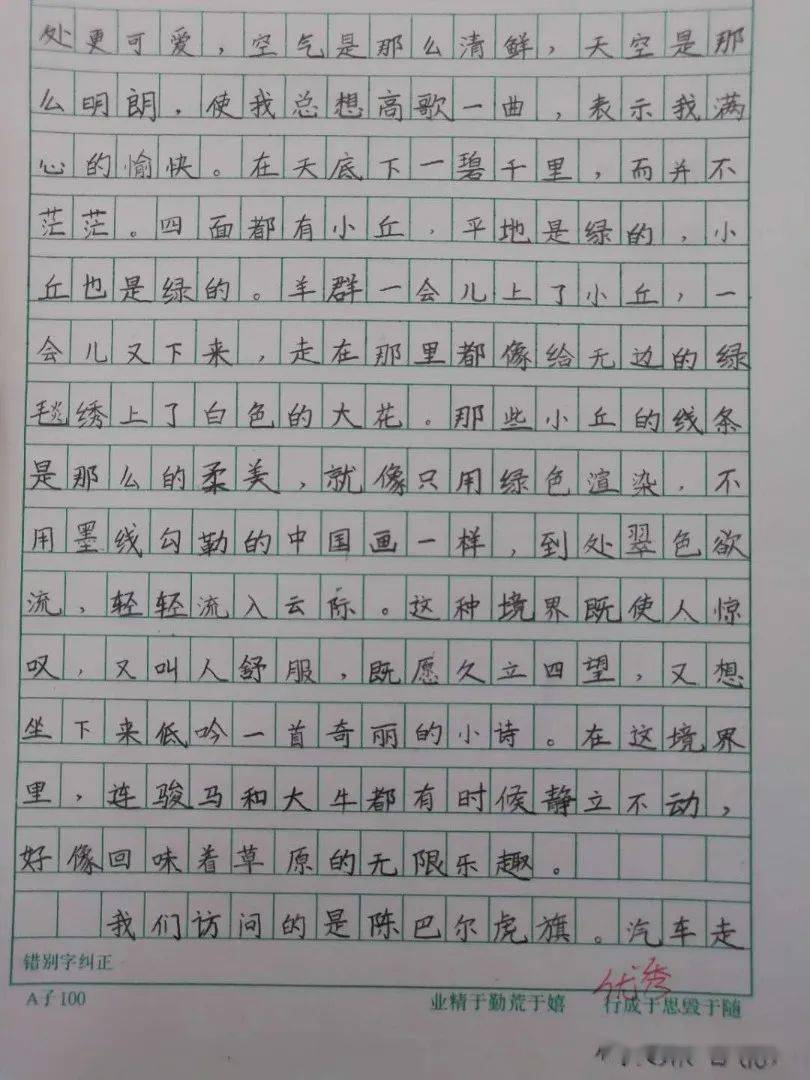 处更可爱，空气是那么清鲜，天空是那
么明朗，使我总想高歌一曲，表示我满
心的愉快。在天底下一碧千里，而并不
茫茫。四面都有小丘，平地是绿的，小
丘也是绿的。羊群一会儿上了小丘，一
会儿又下来，走在那里都像给无边的绿
毯绣上了白色的大花。那些小丘的线条
是那么的柔美，就像只用绿色渲染，不
用墨线勾勒的中国画一样，到处翠色欲
流，轻轻流入云际。这种境界既使人惊
叹，又叫人舒服，既愿久立四望，又想
坐下来低吟一首奇丽的小诗。在这境界
里，连骏马和大牛都有时候静立不动，
好像回味着草原的无限乐趣。
我们访问的是陈巴尔虎旗。汽车走
错别字纠正
优秀
A子100 业精于勤荒于嬉 行成于思毁于随